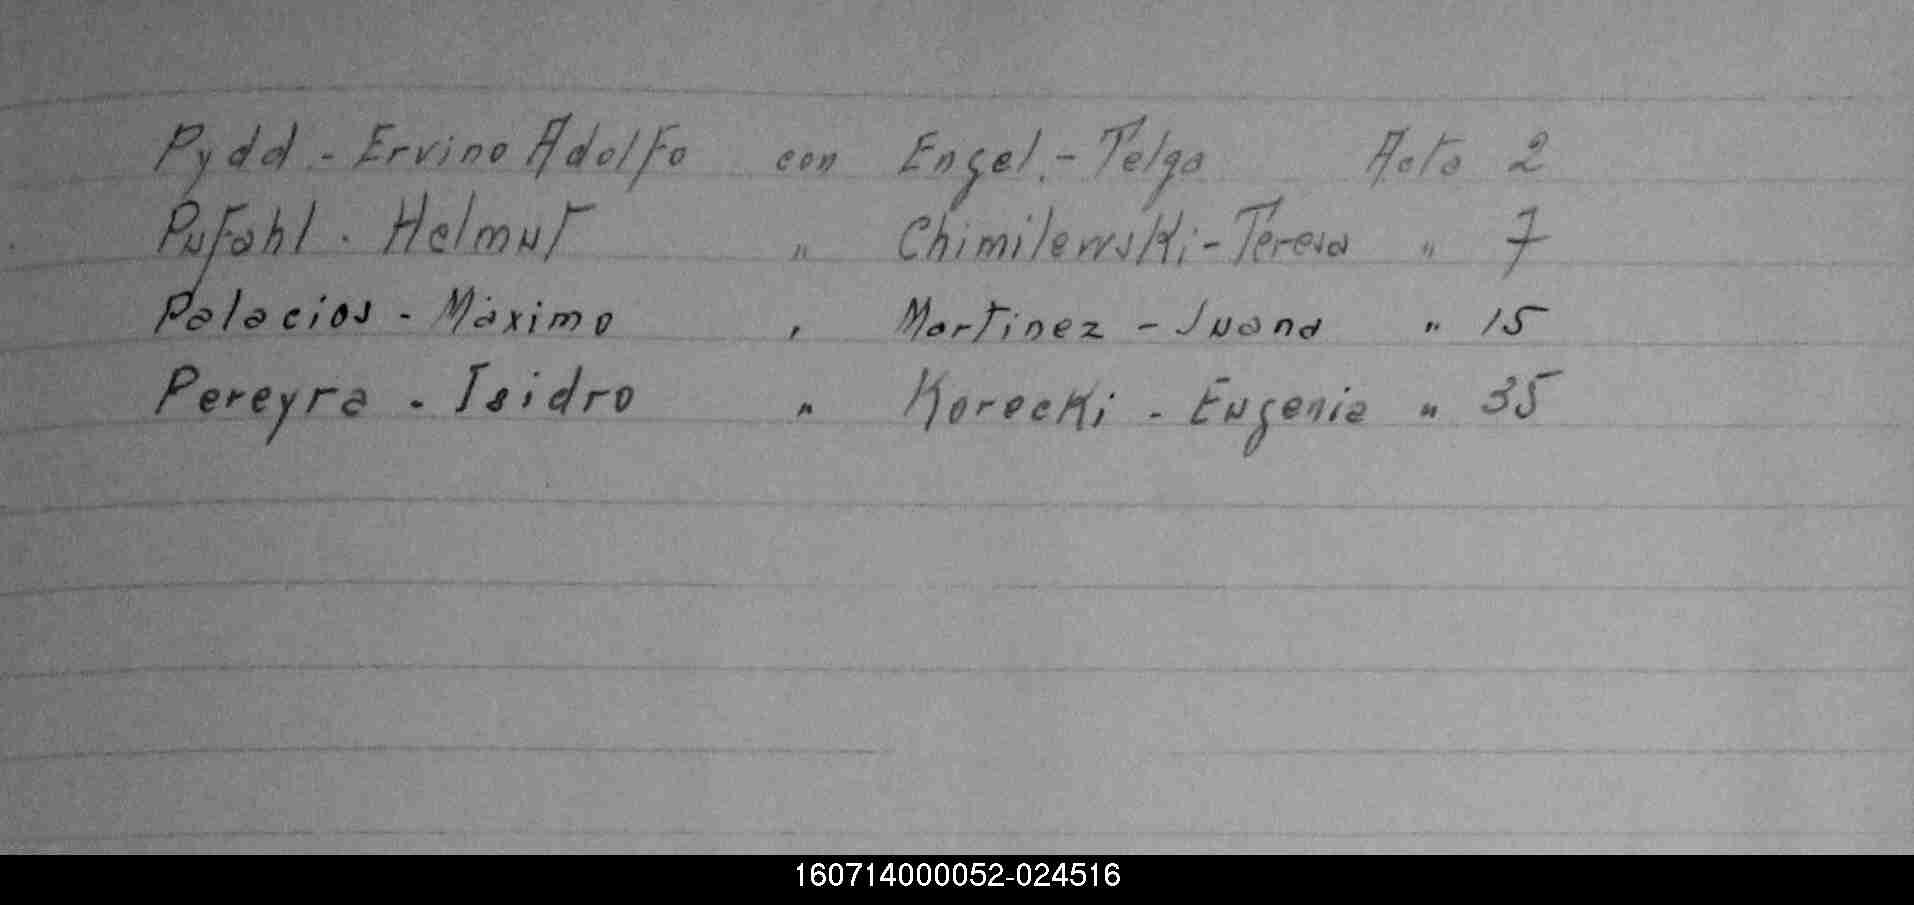 Pydd - Ervino Adolfo con Engel. - Telga Acta 2
Pufahl - Helmut " Chimilewski - Teresa " 7
Palacios - Máximo " Martinez - Juana " 15
Pereyra - Isidro " Korecki - Eugenia " 35
160714000052-024516